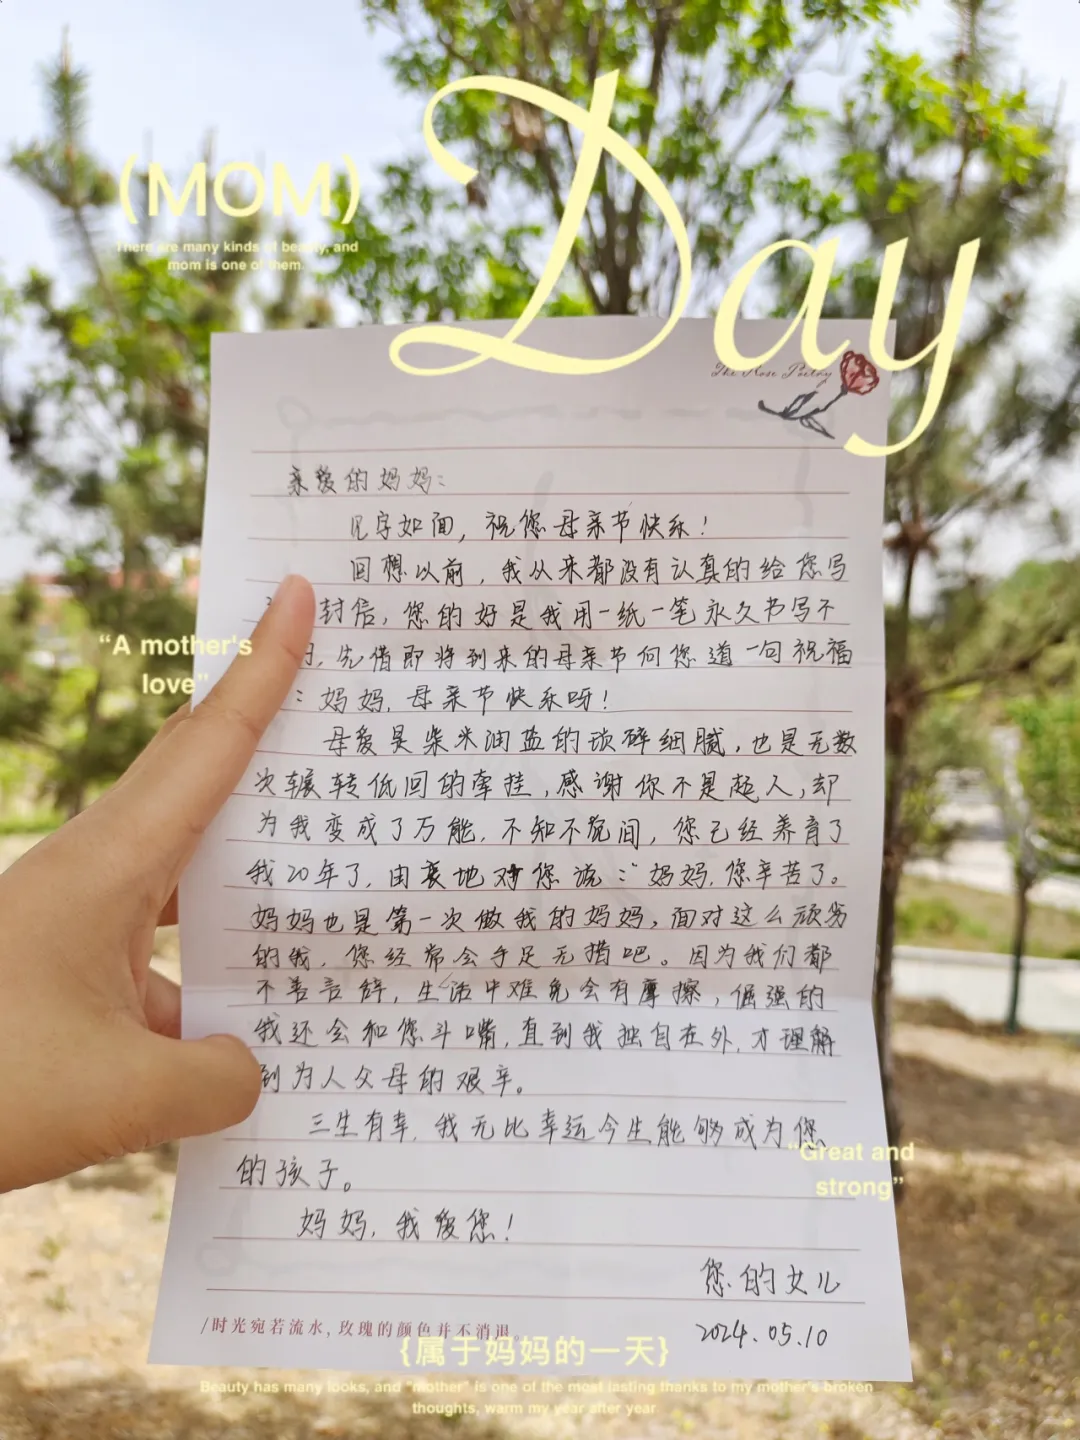 (MOM)
Day
There are many kinds of beauty, and
mom is one of them
The Rose Poetry
亲爱的妈妈：
见字如面，祝您母亲节快乐！
回想以前，我从来都没有认真的给您写
封信，您的好是我用一纸一笔永久书写不
，先借即将到来的母亲节向您道一句祝福
：妈妈，母亲节快乐呀！
"A mother's
love"
母爱是柴米油盐的琐碎细腻，也是无数
次辗转低回的牵挂，感谢你不是超人，却
为我变成了万能，不知不觉间，您已经养育了
我20年了，由衷地对您说："妈妈，您辛苦了。
妈妈也是第一次做我的妈妈，面对这么顽劣
的我，您经常会手足无措吧。因为我们都
不善言辞，生活中难免会有摩擦，倔强的
我还会和您斗嘴，直到我独自在外，才理解
到为人父母的艰辛。
三生有幸，我无比幸运今生能够成为您
的孩子。
"Great and
strong"
妈妈，我爱您！
您的女儿
2024.05.10
/时光宛若流水，玫瑰的颜色并不消退。
{属于妈妈的一天}
Beauty has many looks, and "mother" is one of the most lasting thanks to my mother's broken
thoughts, warm my year after year